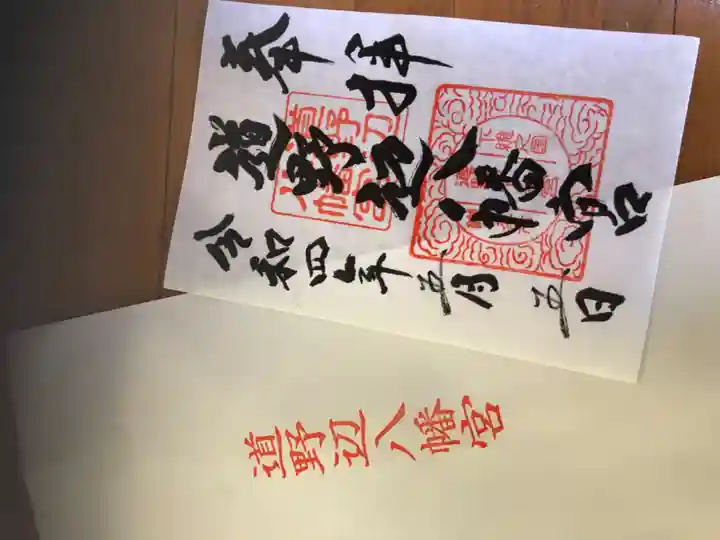 奉拝
道野辺八幡宮
令和四年五月五日
道野辺八幡宮
道野辺八幡宮